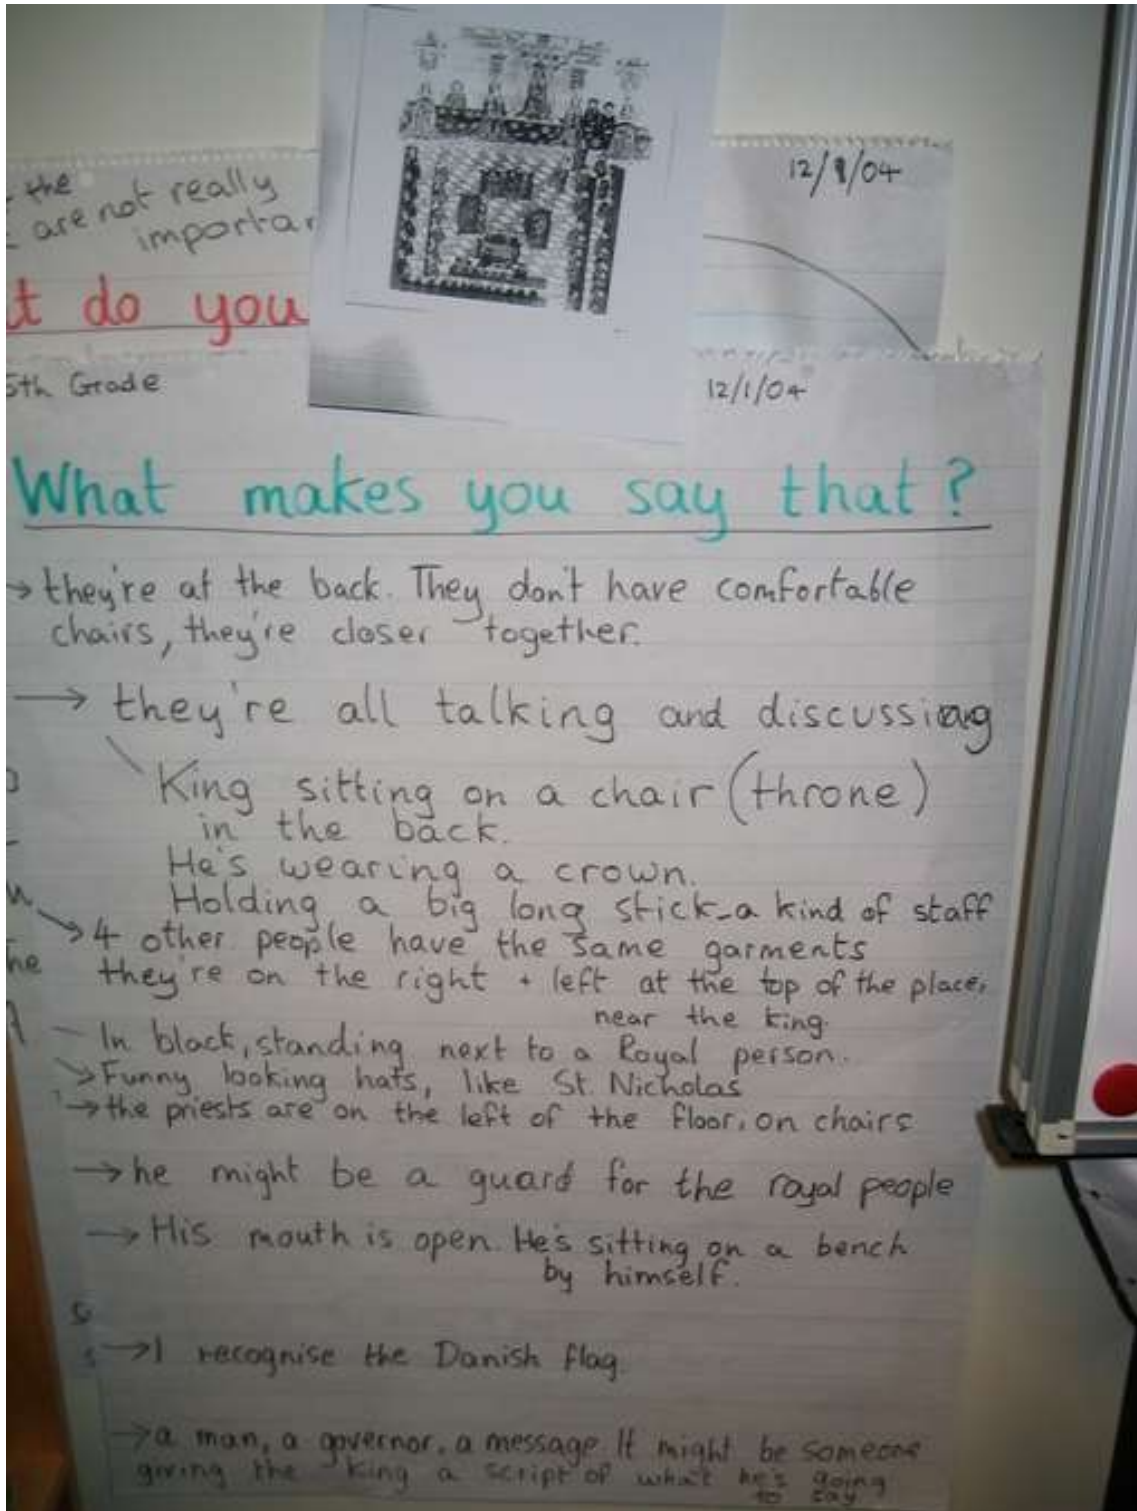 the
are not really
importan
12/1/04
t do you
5th Grade
12/1/04
What makes you say that?
→ they're at the back. They don't have comfortable
chairs, they're closer together.
→ they're all talking and discussing
King sitting on a chair (throne)
in the back.
He's wearing a crown.
Holding a big long stick - a kind of staff
→ 4 other people have the same garments
they're on the right + left at the top of the place,
near the king.
- In black, standing next to a Royal person.
→ Funny looking hats, like St. Nicholas
→ the priests are on the left of the floor, on chairs
→ he might be a guard for the royal people
→ His mouth is open. He's sitting on a bench
by himself.
→ I recognise the Danish flag.
→ a man, a governor, a message. It might be someone
giving the king a script of what he's going
to say